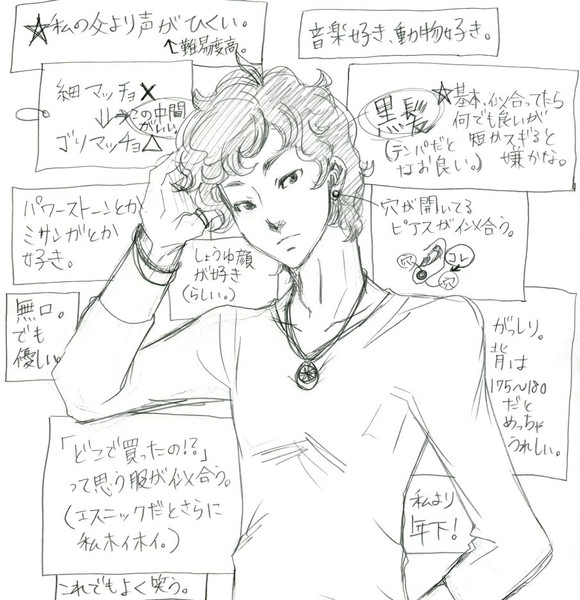 ★私の父より声がひくい。
↑難易度高。
音楽好き、動物好き。
細マッチョ×
↓→この中間
がいい
ゴリマッチョ△
黒髪
★基本、似合ってたら
何でも良いが
短かスギると
嫌かな。
(テンパだと
なお良い。)
パワーストーンとか
ミサンガとか
好き。
しょうゆ顔
が好き
(らしい。)
穴が開いてる
ピアスが似合う。
穴
コレ
穴
無口。
でも
優しい。
がっしり。
背は
175〜180
だと
めっちゃ
うれしい。
「どこで買ったの!?」
って思う服が似合う。
(エスニックだとさらに
私ホイホイ。)
私より
年下!
これでもよく笑う。